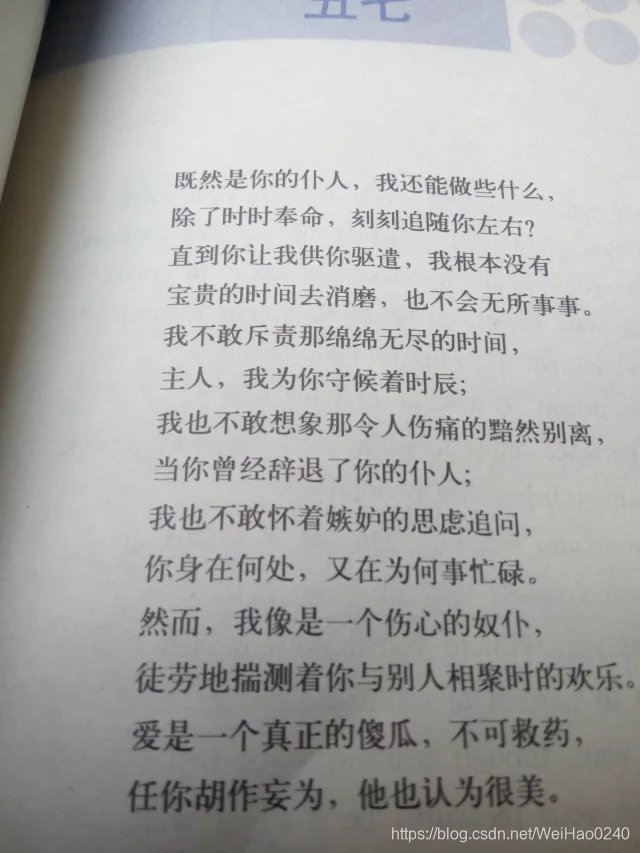 五七
既然是你的仆人，我还能做些什么，
除了时时奉命，刻刻追随你左右？
直到你让我供你驱遣，我根本没有
宝贵的时间去消磨，也不会无所事事。
我不敢斥责那绵绵无尽的时间，
主人，我为你守候着时辰；
我也不敢想象那令人伤痛的黯然别离，
当你曾经辞退了你的仆人；
我也不敢怀着嫉妒的思虑追问，
你身在何处，又在为何事忙碌。
然而，我像是一个伤心的奴仆，
徒劳地揣测着你与别人相聚时的欢乐。
爱是一个真正的傻瓜，不可救药，
任你胡作妄为，他也认为很美。
https://blog.csdn.net/WeiHao0240